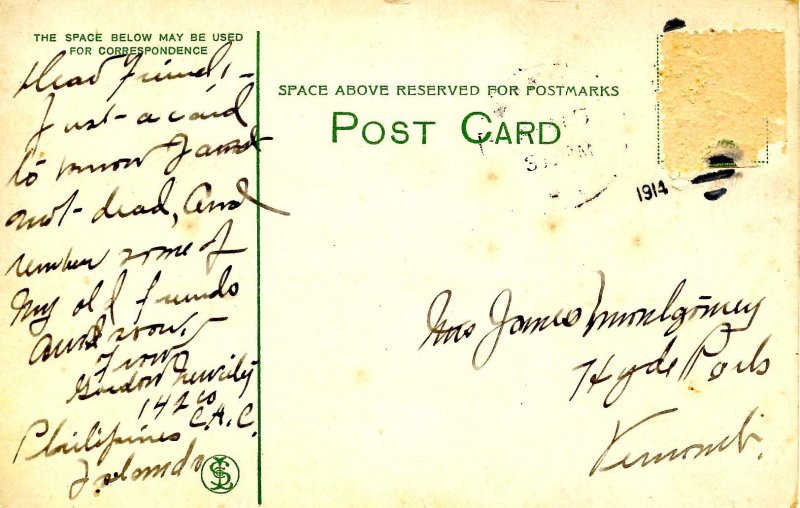 THE SPACE BELOW MAY BE USED
FOR CORRESPONDENCE
Dear Friend,-
Just- a card
to know I am
not- dead, And
remember some of
My old friends
and
From
Gordon
142 Co C.A.C.
Philipines
Islands
SPACE ABOVE RESERVED FOR POSTMARKS
POST CARD
PM
1914
Mrs James Montgomery
Hyde Park
Vermont.